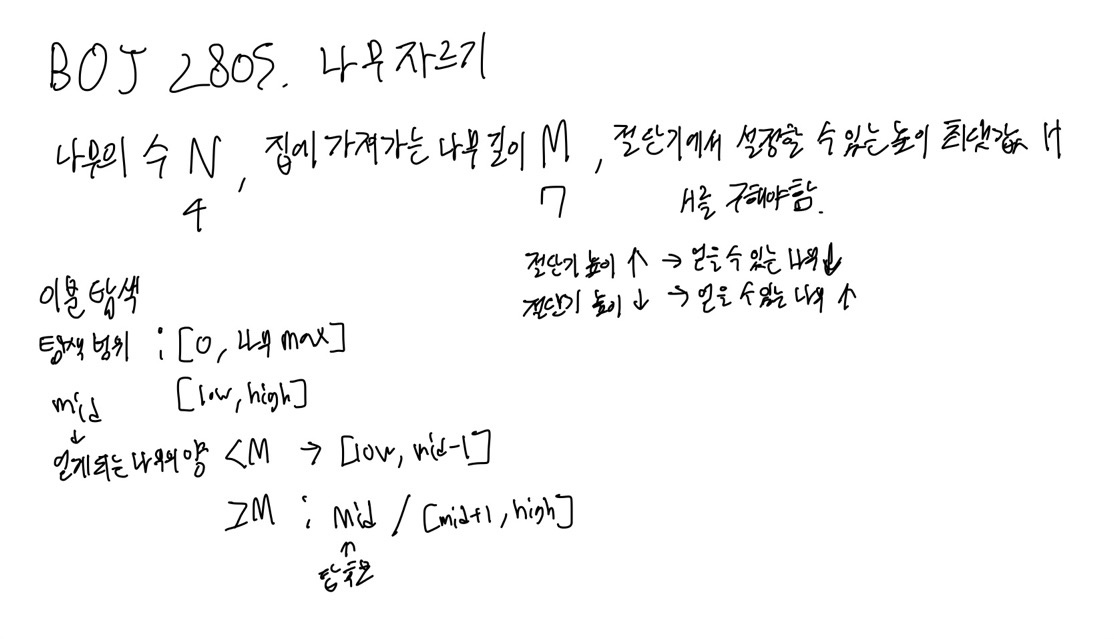 BOJ 2805. 나무 자르기
나무의 수 N, 집에 가져가는 나무 길이 M, 절단기에서 설정할 수 있는 높이 최댓값 H
4 7 H를 구해야 함.
절단기 높이 ↑ → 얻을 수 있는 나무 ↓
절단기 높이 ↓ → 얻을 수 있는 나무 ↑
이분 탐색
탐색 범위 : [0, 나무 max]
mid [low, high]
↓
얻게 되는 나무의 양 < M → [low, mid-1]
≥M : mid / [mid+1, high]
↑
답 후보